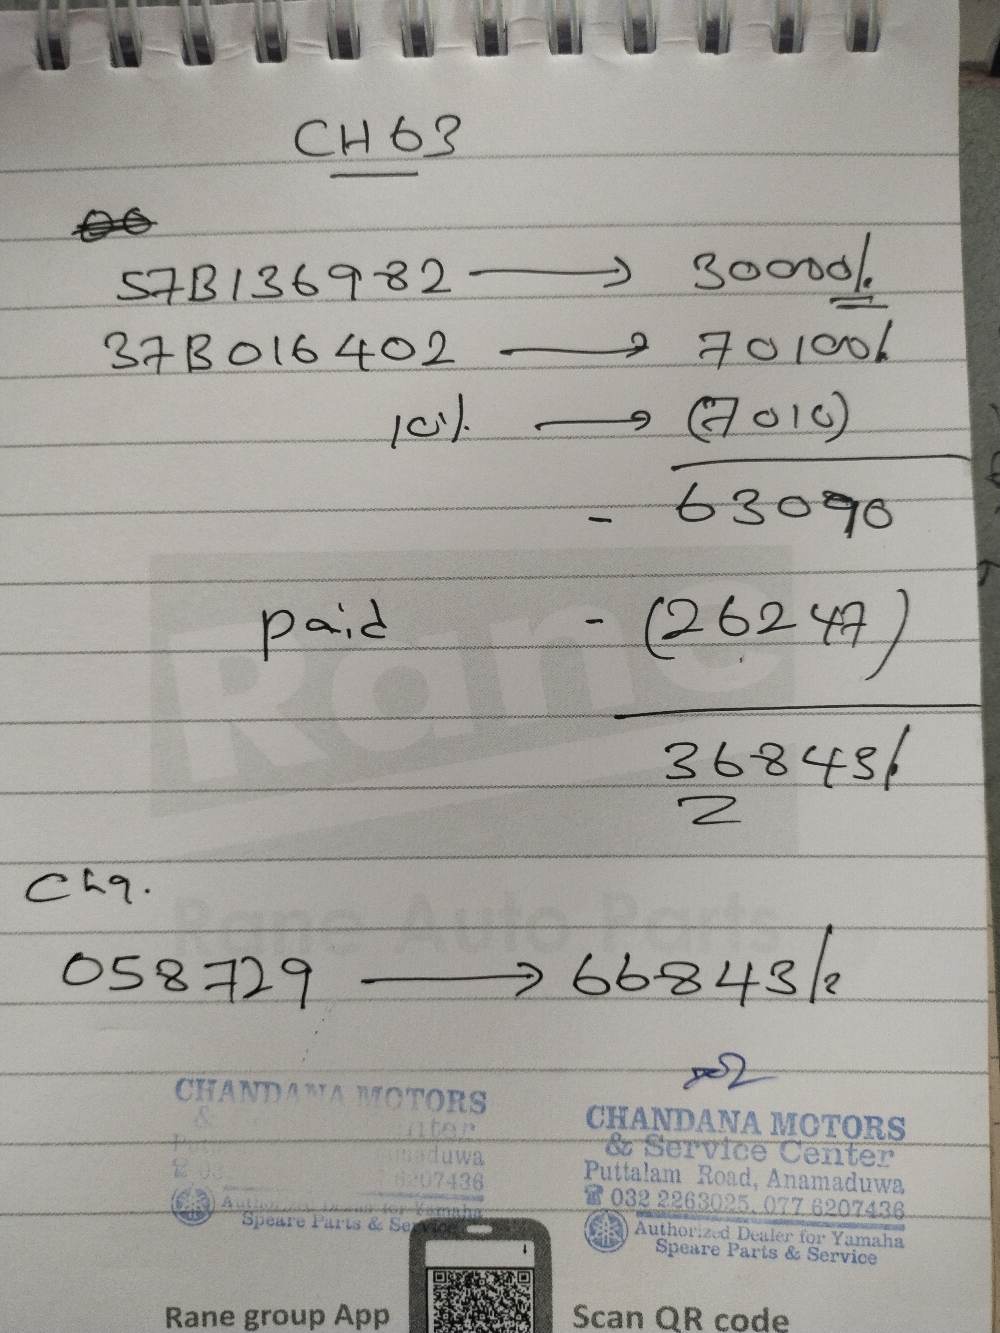 CH63
57B136982 → 30000/.
37B016402 → 70100/.
10% → (7010)
- 63090
paid - (26247)
36843/.
Chq.
058729 → 66843/.
Rane
Rane Auto Parts
CHANDANA MOTORS
&
Speare Parts & Service
CHANDANA MOTORS
& Service Center
Puttalam Road, Anamaduwa
☎ 032 2263025, 077 6207436
Authorized Dealer for Yamaha
Speare Parts & Service
Rane group App
Scan QR code